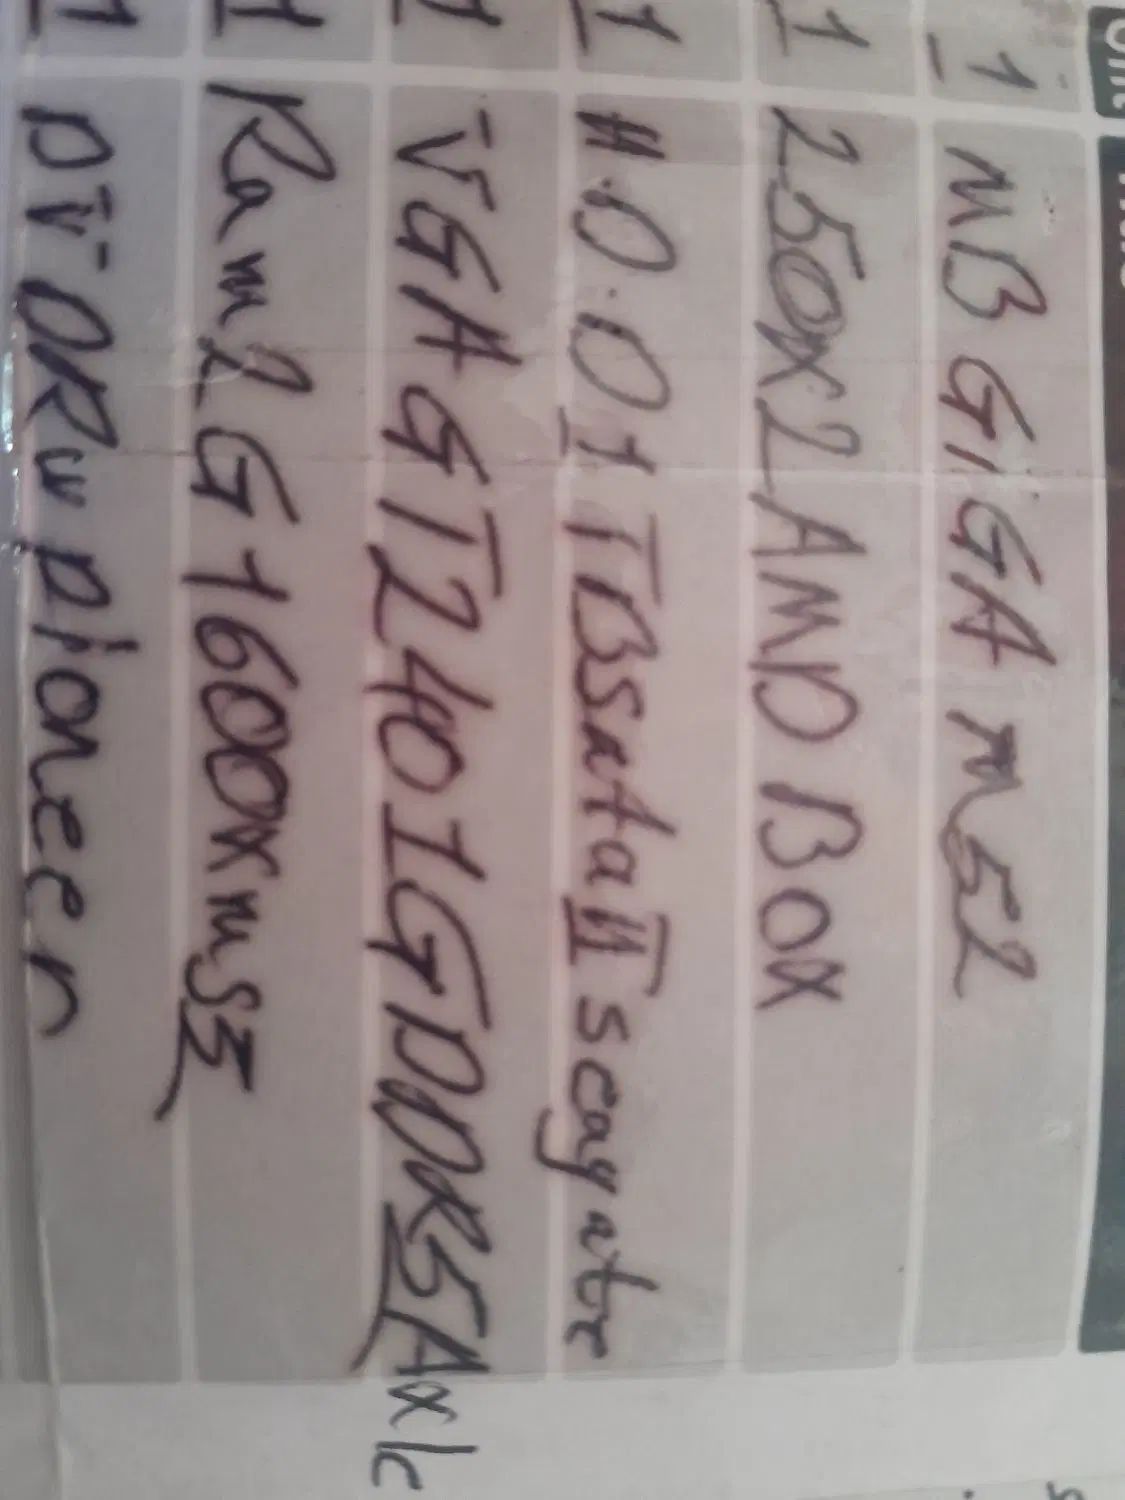 1 MB GiGA M52
1 250X2 AMD BOX
1 H.D.D 1TB sata II seagate
1 VGA GT240 1G DDR5 Axle
1 Ram 2G 1600
1 DV-DRW pioneer